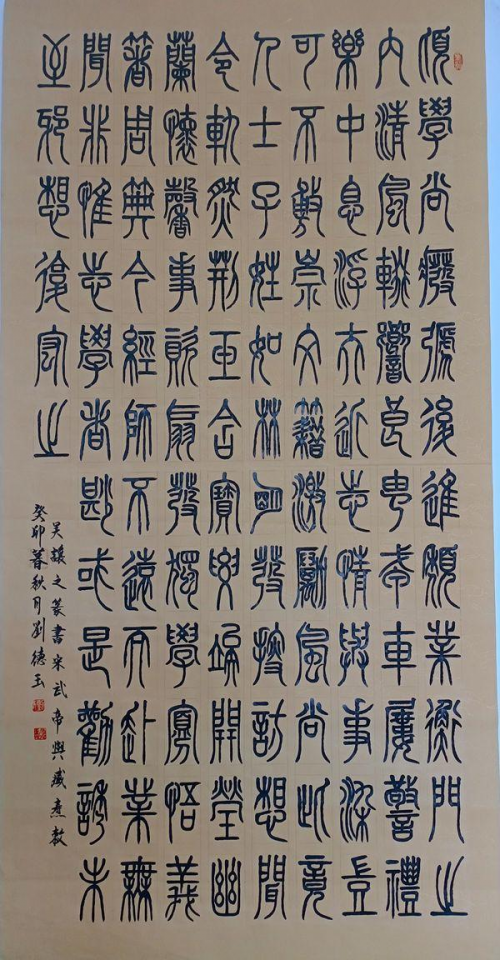 頃學尚廢弛後進頹業衡門之
內清風輟響良由戎車屢警禮
樂中息浮夫近志情與事染豈
可不敷崇文籍激勵風尚此竟
人士子姪如林明發搜訪想聞
令軌然荊玉含寶要竢開瑩幽
蘭懷馨事資扇發獨學寡悟義
著周典今經師不遠而赴業無
聞非惟志學者尠或是勸誘未
至邪想復宏之
吳讓之篆書宋武帝與臧燾敕
癸卯暮秋月劉德玉